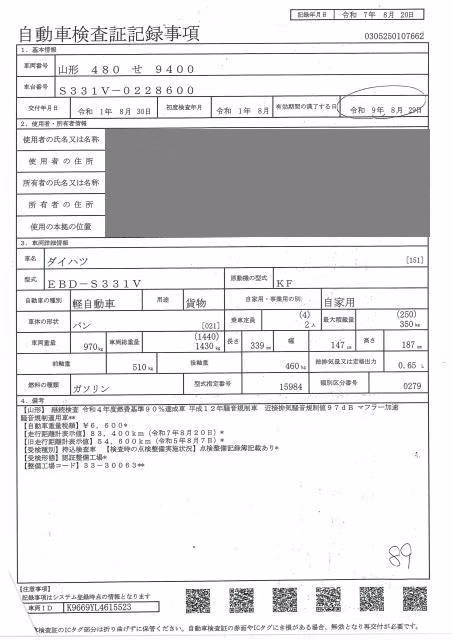 記録年月日 令和 7年 8月 20日
自動車検査証記録事項
0305250107662
1. 基本情報
車両番号 山形 480 せ 9400
車台番号 S331V-0228600
交付年月日 令和 1年 8月 30日 初度検査年月 令和 1年 8月 有効期間の満了する日 令和 9年 8月 29日
2. 使用者・所有者情報
使用者の氏名又は名称
使用者の住所
所有者の氏名又は名称
所有者の住所
使用の本拠の位置
3. 車両詳細情報
車名 ダイハツ [151]
型式 EBD-S331V 原動機の型式 KF
自動車の種別 軽自動車 用途 貨物 自家用・事業用の別 自家用
車体の形状 バン [021] 乗車定員 (4) 2人 最大積載量 (250) 350kg
車両重量 970kg 車両総重量 (1440) 1430kg 長さ 339cm 幅 147cm 高さ 187cm
前軸重 510kg 後軸重 460kg 総排気量又は定格出力 0.65 L
燃料の種類 ガソリン 型式指定番号 15984 類別区分番号 0279
4. 備考
【山形】 継続検査 令和4年度燃費基準90%達成車 平成12年騒音規制車 近接排気騒音規制値97dB マフラー加速
騒音規制適用車**
【自動車重量税額】¥6,600*
【走行距離計表示値】83,400km(令和7年8月20日)*
【旧走行距離計表示値】54,600km(令和5年8月7日)*
【受検種別】持込検査車 【検査時の点検整備実施状況】点検整備記録簿記載あり*
【受検形態】認証整備工場*
【整備工場コード】33-30063**
89
【注意事項】
記録事項はシステム登録時点の情報となります
車両ID K9669YL4615523
検査証のICタグ部分は折り曲げずに保管ください。自動車検査証の券面やICタグに き損がある場合、無効となり再交付が必要です。